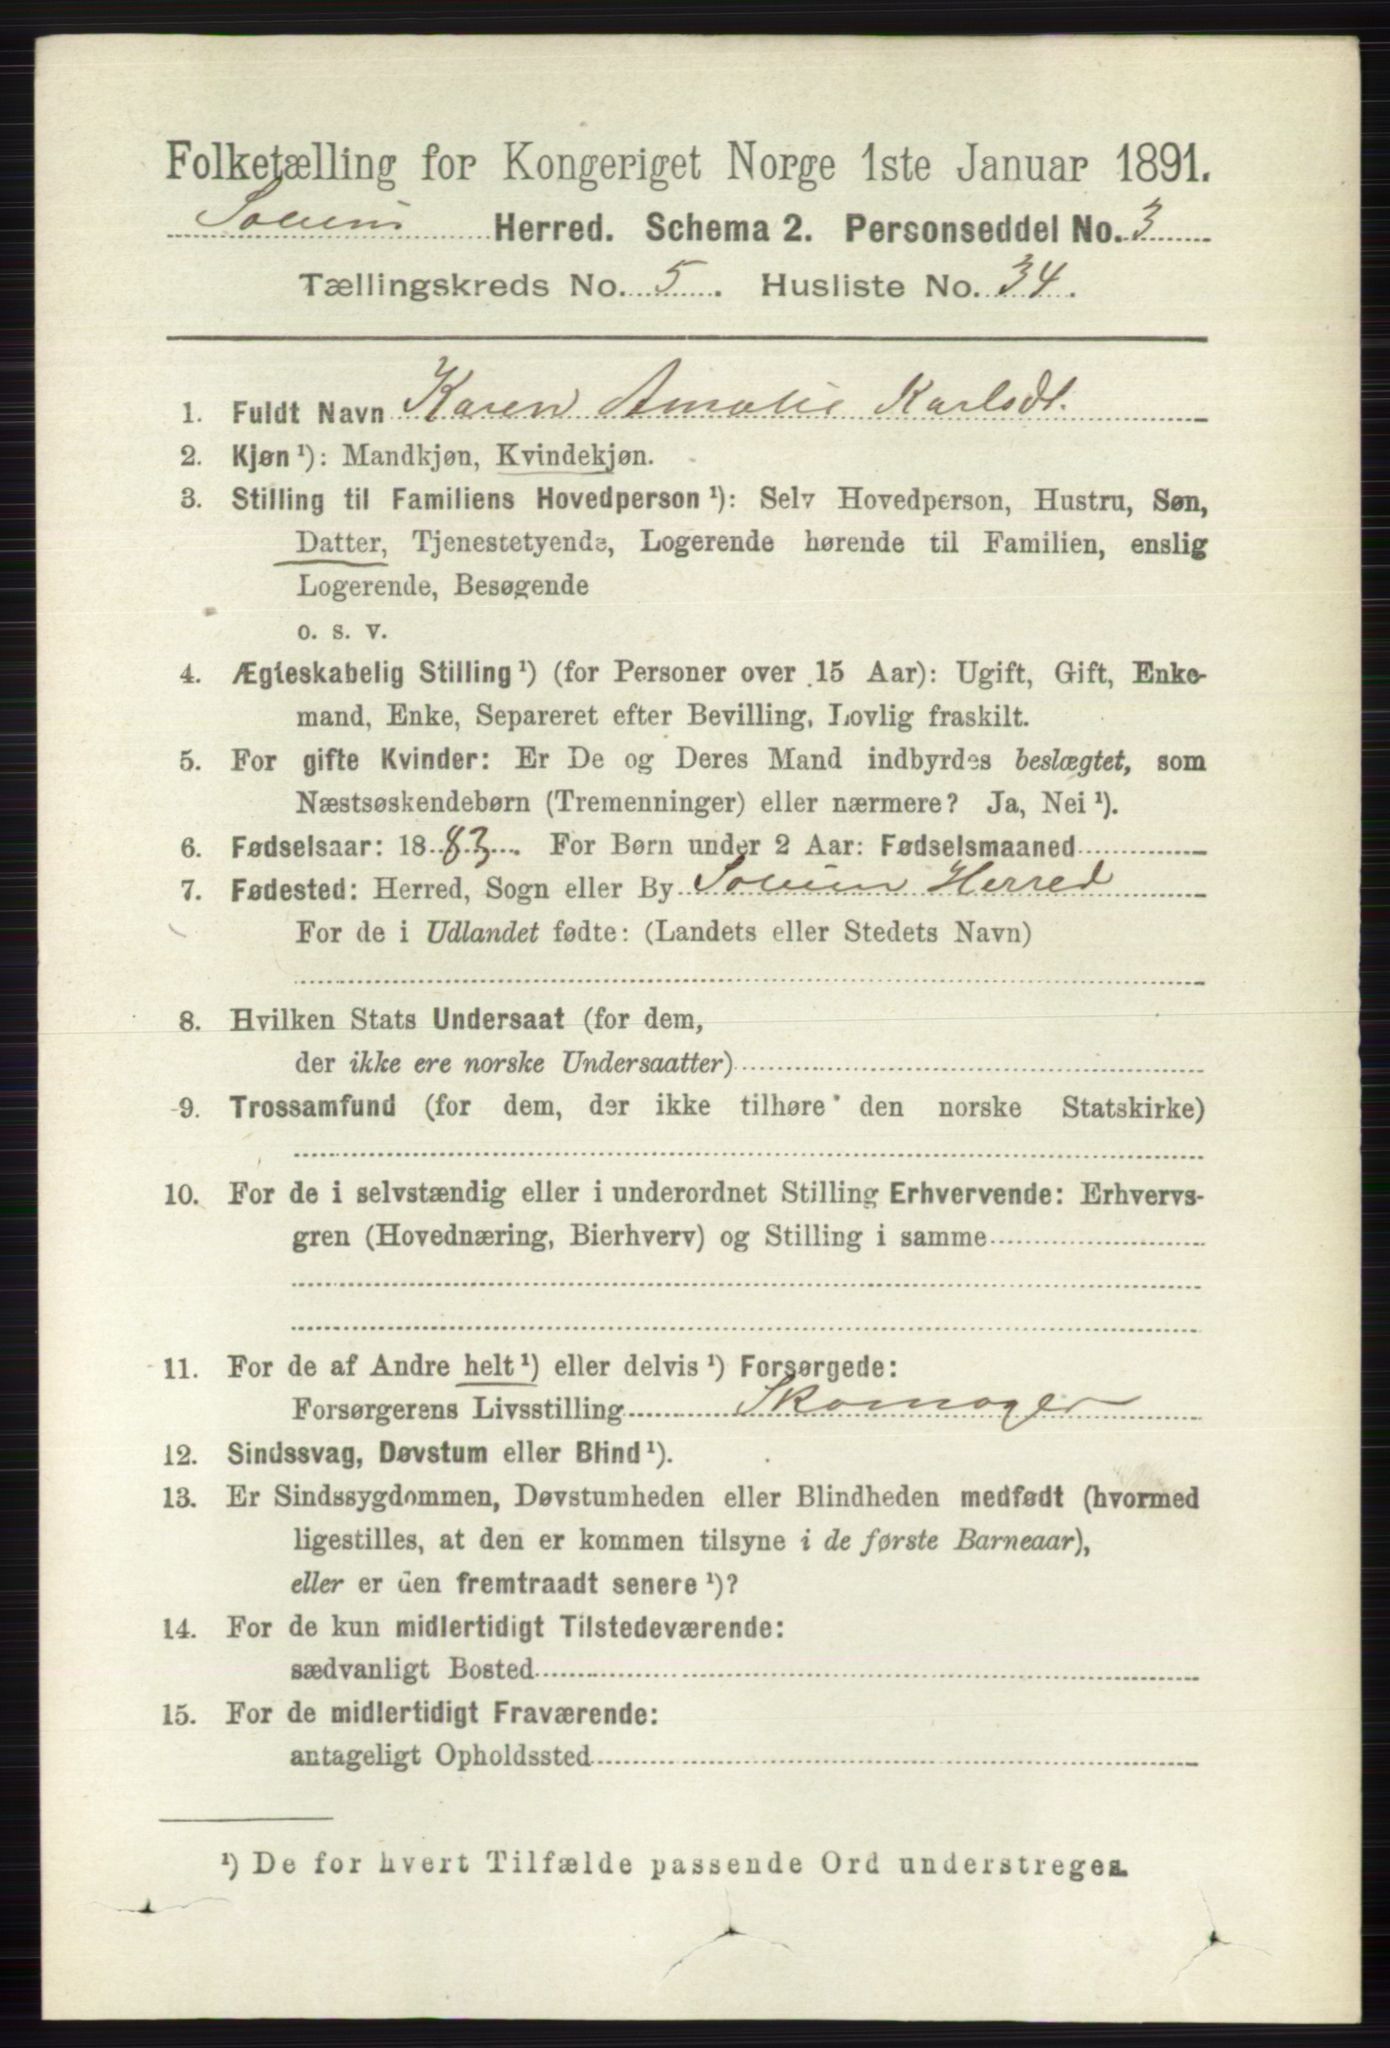 Folketælling for Kongeriget Norge 1ste Januar 1891.
Solum Herred. Schema 2. Personseddel No. 3
Tællingskreds No. 5. Husliste No. 34.
1. Fuldt Navn Karen Amalie Karlsdt.
2. Kjøn ¹): Mandkjøn, Kvindekjøn.
3. Stilling til Familiens Hovedperson ¹): Selv Hovedperson, Hustru, Søn,
Datter, Tjenestetyende, Logerende hørende til Familien, enslig
Logerende, Besøgende
o. s. v.
4. Ægteskabelig Stilling ¹) (for Personer over 15 Aar): Ugift, Gift, Enke-
mand, Enke, Separeret efter Bevilling, Lovlig fraskilt.
5. For gifte Kvinder: Er De og Deres Mand indbyrdes beslægtet, som
Næstsøskendebørn (Tremenninger) eller nærmere? Ja, Nei ¹).
6. Fødselsaar: 1883. For Børn under 2 Aar: Fødselsmaaned
7. Fødested: Herred, Sogn eller By Solum Herred
For de i Udlandet fødte: (Landets eller Stedets Navn)
8. Hvilken Stats Undersaat (for dem,
der ikke ere norske Undersaatter)
9. Trossamfund (for dem, der ikke tilhøre den norske Statskirke)
10. For de i selvstændig eller i underordnet Stilling Erhvervende: Erhvervs-
gren (Hovednæring, Bierhverv) og Stilling i samme
11. For de af Andre helt ¹) eller delvis ¹) Forsørgede:
Forsørgerens Livsstilling Skomager
12. Sindssvag, Døvstum eller Blind ¹).
13. Er Sindssygdommen, Døvstumheden eller Blindheden medfødt (hvormed
ligestilles, at den er kommen tilsyne i de første Barneaar),
eller er den fremtraadt senere ¹)?
14. For de kun midlertidigt Tilstedeværende:
sædvanligt Bosted
15. For de midlertidigt Fraværende:
antageligt Opholdssted
¹) De for hvert Tilfælde passende Ord understreges.